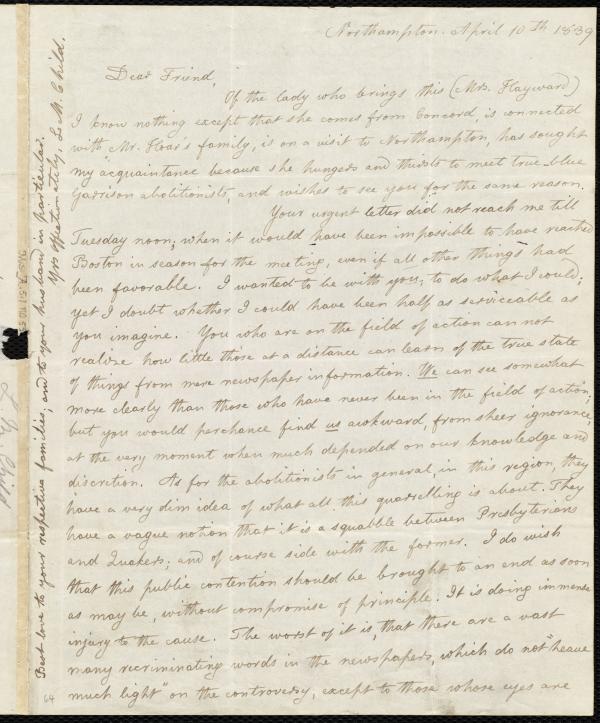 Northampton. April 10th 1839
Dear Friend,
Of the lady who brings this (Mrs. Hayward)
I know nothing except that she comes from Concord, is connected
with Mr. Hoar's family, is on a visit to Northampton, has sought
my acquaintance because she hungers and thirsts to meet true-blue
Garrison abolitionists, and wishes to see you for the same reason.
Your urgent letter did not reach me till
Tuesday noon; when it would have been impossible to have reached
Boston in season for the meeting, even if all other things had
been favorable. I wanted to be with you, to do what I could;
yet I doubt whether I could have been half as serviceable as
you imagine. You who are on the field of action can not
realize how little those at a distance can learn of the true state
of things from mere newspaper information. We can see somewhat
more clearly than those who have never been in the field of action;
but you would perchance find us awkward, from sheer ignorance,
at the very moment when much depended on our knowledge and
discretion. As for the abolitionists in general, in this region, they
have a very dim idea of what all this quarrelling is about. They
have a vague notion that it is a squabble between Presbyterians
and Quakers; and of course side with the former. I do wish
that this public contention should be brought to an end as soon
as may be, without compromise of principle. It is doing immense
injury to the cause. The worst of it is, that there are a vast
many recriminating words in the newspapers, which do not "heave
much light" on the controversy, except to those whose eyes are
Best love to your respective families; and to your husband in particular.
Yrs affectionately, L. M. Child.
64